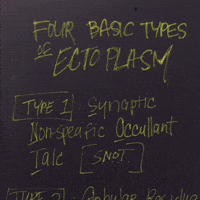 FOUR BASIC TYPES
OF ECTOPLASM
[TYPE 1] Synaptic
Non-specific Occullant
Talc [SNOT.]
[TYPE 2] Globular Residue